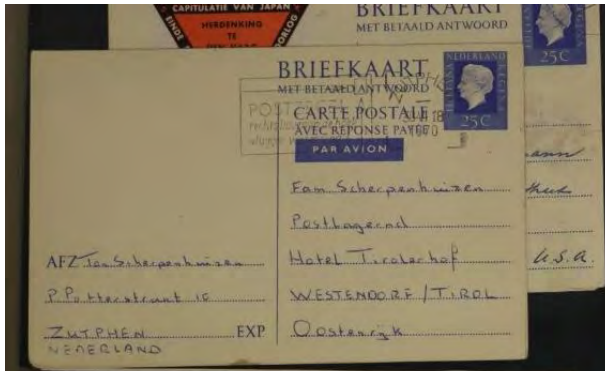 CAPITULATIE VAN JAPAN
HERDENKING
TE
DEN HAAG
EINDE
OORLOG
BRIEFKAART
MET BETAALD ANTWOORD
NEDERLAND
25C
U.S.A.
BRIEFKAART
MET BETAALD ANTWOORD
CARTE POSTALE
AVEC REPONSE PAYEE
PAR AVION
NEDERLAND
25C
ZUTPHEN
18
1970
Fam Scherpenhuizen
Postlagernd
Hotel Tirolerhof
WESTENDORF / TIROL
Oostenrijk
AFZ Jan Scherpenhuizen
P. Potterstraat 16
ZUTPHEN EXP
NEDERLAND